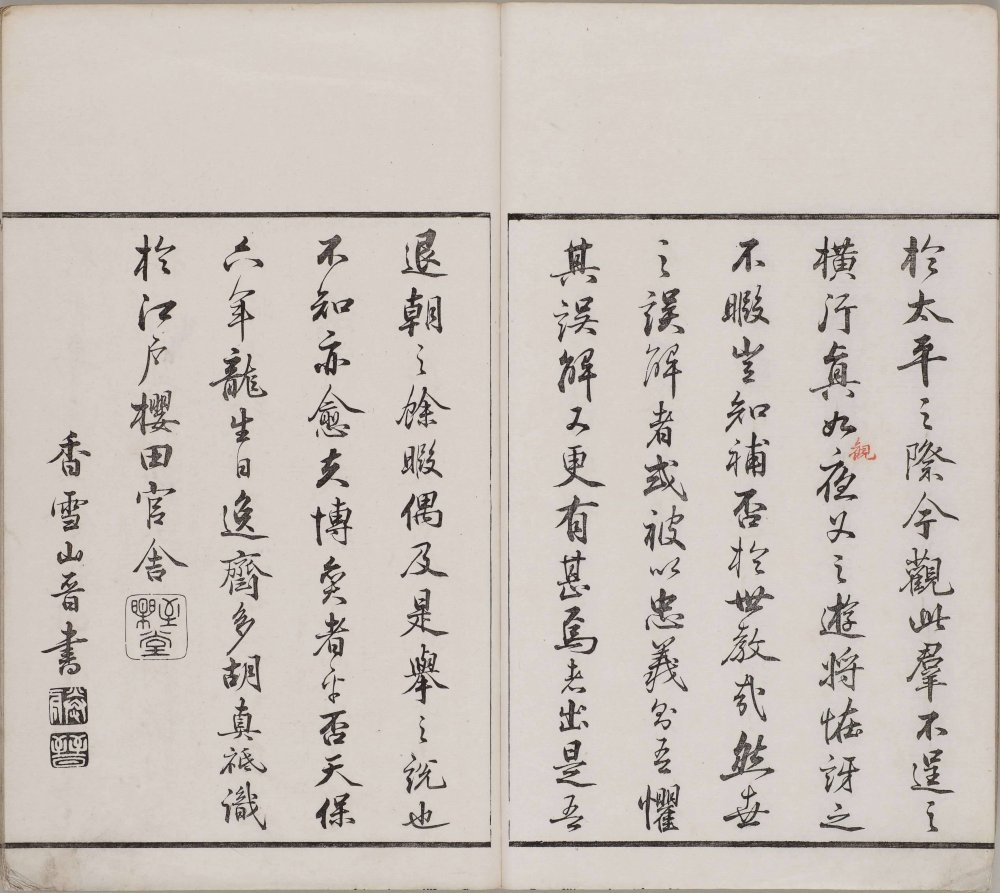 於太平之際今觀此羣不逞之
橫行真如夜叉之遊將恠訝之
觀
不暇豈知補否於世教哉然世
之誤解者或被以忠義則吾懼
其誤解又更有甚焉者出是吾
退朝之餘暇偶及是舉之說也
不知亦愈夫博奕者乎否天保
六年龍生日逸齋多胡真祗識
於江戶櫻田官舍
香雪山晉書